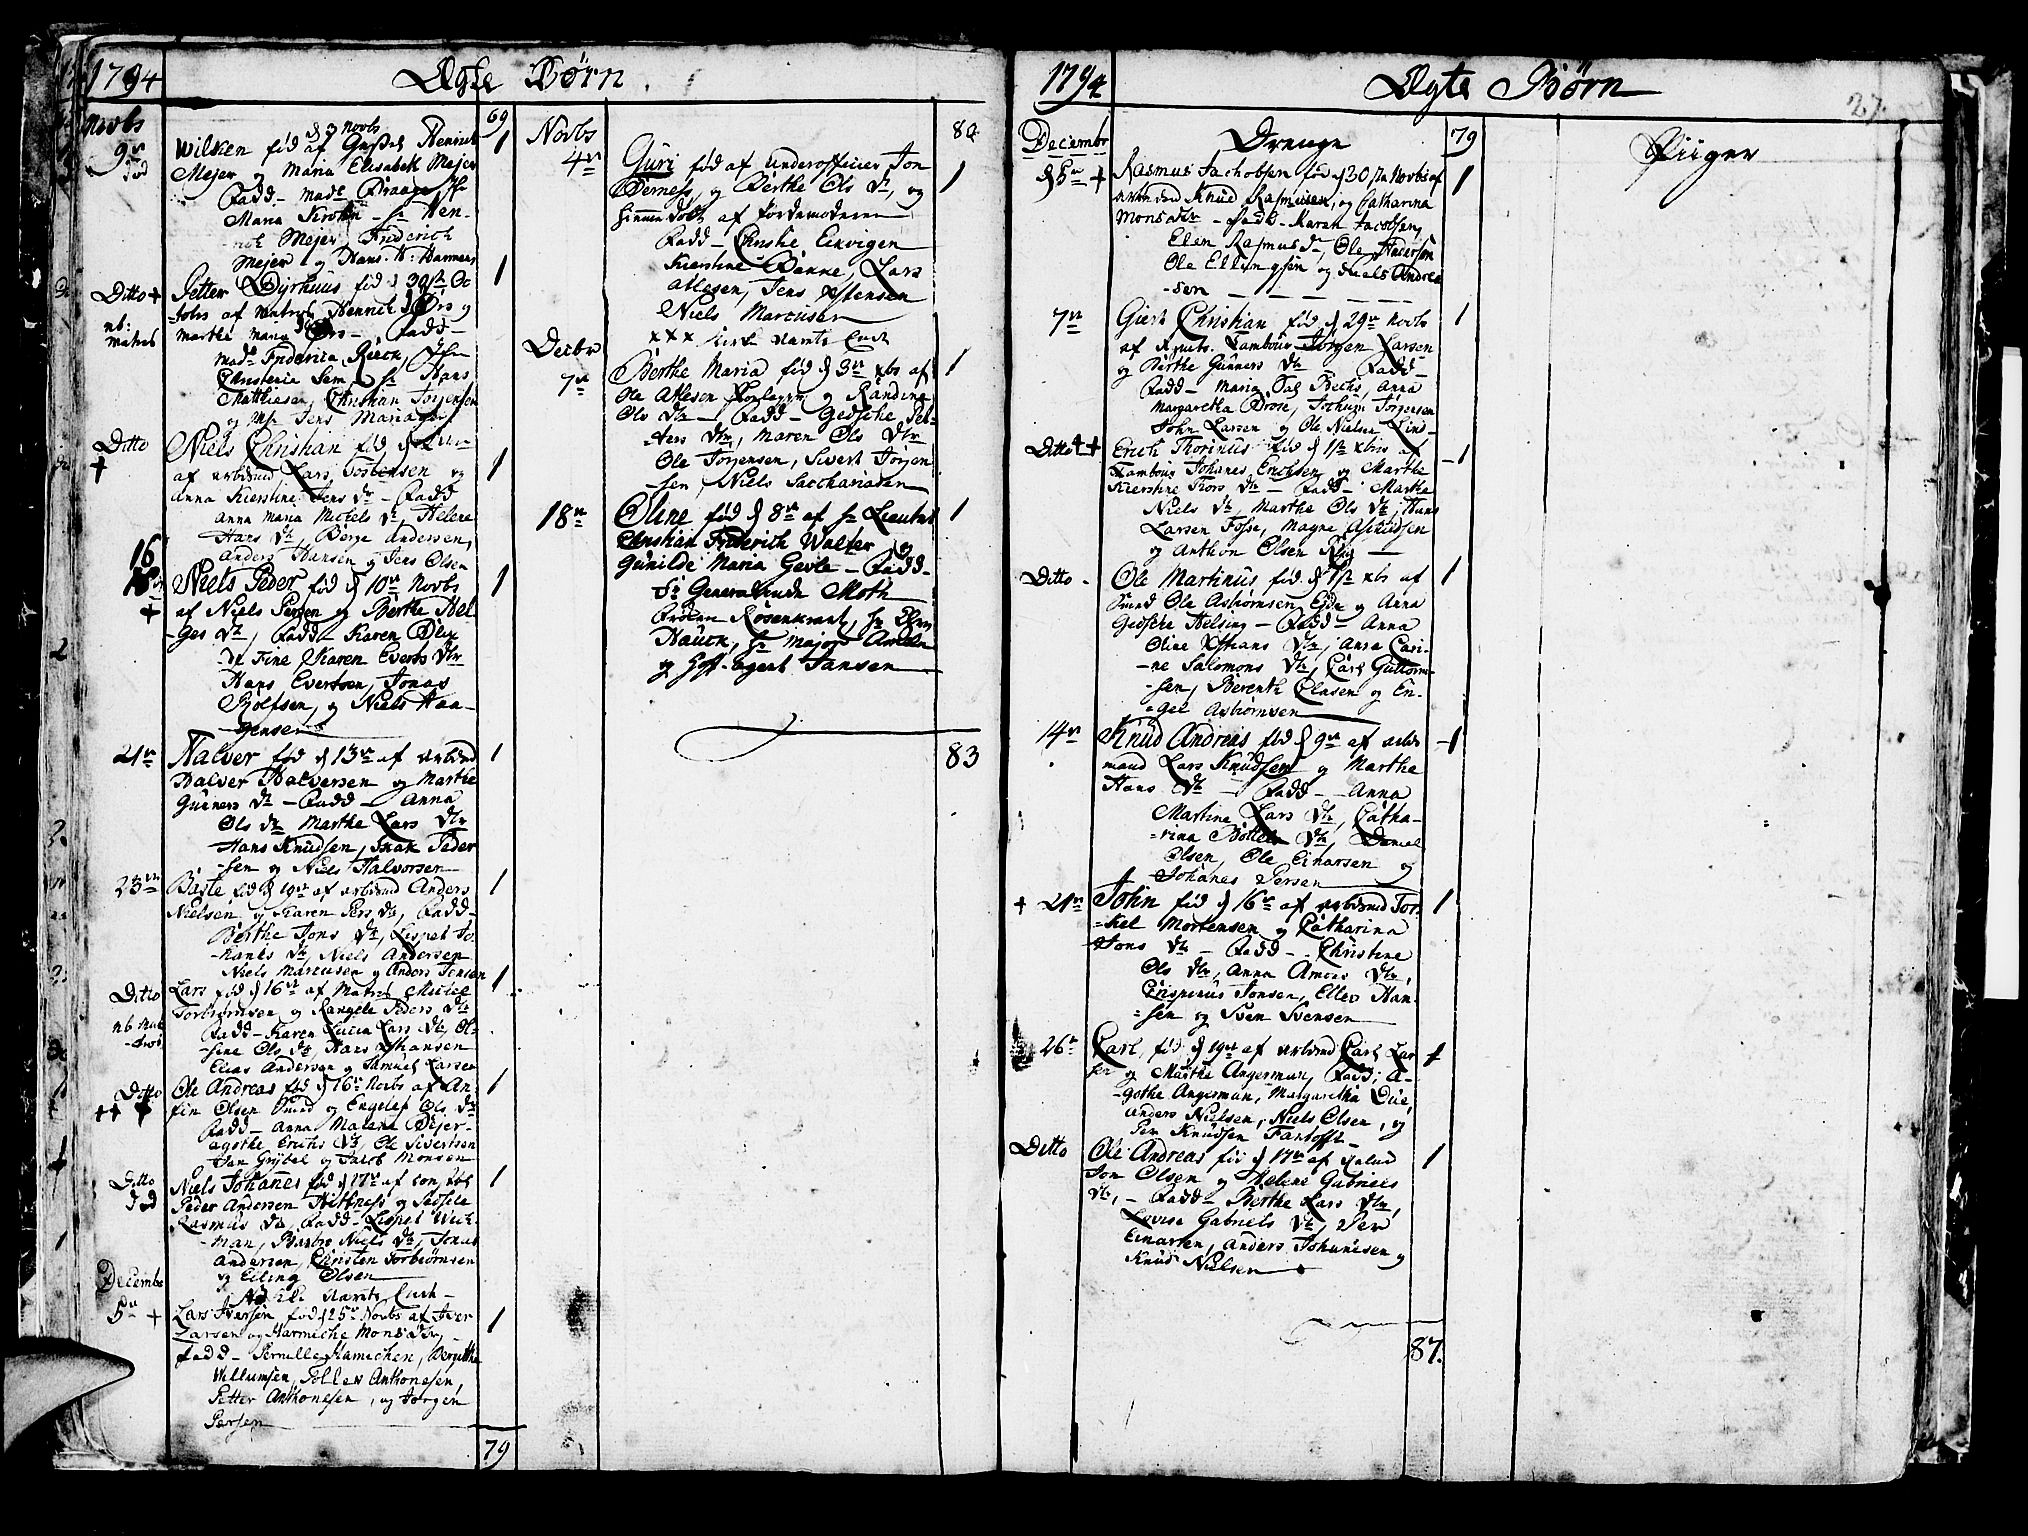 1794
Ægte Børn
69
Novbr
9de
død
d 3 Novbr
Wilken fød af Henrich 1
Mejer og Maria Elisabeth Mejer
Fadd - Made Jfr
Maria Krohn - Hr Hen-
rich Mejer Friderich
Mejer og Hans
Ditto +
nb:
matros
Petter Dyrhuus fød d 30te Oc 1
tobr af matros Henrich og
Martha Maria - Fadd -
Made Friderica Rieck, Jfr
Christense Sem, Hr Hans
Matthiesen, Christian Jørgensen
og Jens
Ditto
+
Niels Christian fød d
af arbdmd Lars Torbensen og 1
Anna Kierstine Jens Dtr - Fadd
Anna Maria Michels Dtr, Helene
Hans Dtr, Børge Andersen,
Anders Hansen og Jens Olsen
16
+
Niels Peder fød d 10de Novbr 1
af Niels Persen og Berthe Hel
ges Dtr, Fadd - Karen
Karen Everts Dtr
Hans Evertsen, Jonas
Rolfsen, og Niels Haa-
gensen
21de
Halver fød d 13de af arbdmd 1
Halver Halversen og Marthe
Gunners Dtr - Fadd - Anna
Ols Dtr Marthe Lars Dtr
Hans Knudsen, Isak Peder
sen og Niels Halvorsen
23de
Baste fød d 19de af arbdmd Anders 1
Nielsen og Karen Pers Dtr, Fadd -
Berthe Jons Dtr, Lispet Jo-
hanes Dtr, Niels Andersen
Niels Marcusen og Anders Jonsen
Ditto
nb mat
-ros
Lars fød d 16de af Matros 1
Torbiørnsen og Rangele Peders Dtr
Fadd - Karen Lucia Lars Dtr, Ol-
sine Ols Dtr, Hans Xstiansen
Elias Andersen og Samuel Larsen
Ditto
++
Ole Andreas fød d 16de Novbr af An- 1
fin Olsen Smed og Engelef Ols Dtr
Fadd - Anna Malena
agothe Erichs Dtr, Ole Sivertsen
Jan Grybel og Jacob Monsen
Ditto
død
Niels Johannes fød d 17de af 1
Peder Andersen og
Rasmus Dtr, Fadd - Lispet Wich-
man, Barbro Niels Dtr, Jonas
Andersen, Christen Torbiørnsen
og Elling Olsen
December
5de +
Lars Iversen fød d 25de Novbr af Iver 1
Larsen og Harmiche Mons Dtr,
fadd - Pernille Hamichen, Bergithe
Willumsen, Toller Anthonesen,
Petter Anthonesen, og Jørgen
Persen
79
Novbr
4de
80
Guri fød af Underofficier Jon 1
og Berthe Ols Dtr, og
hiemme døbt af Jordemoderen
Fadd - Christie Eikvigen
Kierstine Bønne, Lars
Atlesen, Jens Xstensen
Niels Marcusen
xxx
Decbr
7de
Berthe Maria fød d 3de xbr af 1
Ole Atlesen og Randina
Ols Dtr - Fadd - Gedsche Pet-
ters Dtr, Maren Ols Dtr
Ole Jørgensen, Sivert Jørgen
sen, Niels Sacchariasen
18de
Oline fød d 8de af Hr Lieutnt 1
Christian Friderich Walter og
Gunilde Maria Gevle - Fadd -
Fr Generalinde Moth
Frøken Rosenkrantz, Hr
Hauch, Hr Major
og Hoff-agent Jansen
83
1794
Ægte Børn
27.
Drenge
79
Piiger
Decembr
d 5de +
Rasmus Jachobsen fød d 30te Novbr af 1
Knud Rasmusen, og Catharina
Mons Dtr - Fadd - Karen Jacobsen,
Elen Rasmus Dtr, Ole Andersen
Ole Ellingsen og Niels Andrea
sen
7de
Giert Christian fød d 29de Novbr 1
af Tambour Jørgen Larsen
og Berthe Gunners Dtr - Fadd -
Maria Dal Bechs, Anna
Margaretha Brose, Jochum Jørgensen
John Larsen og Ole Nielsen Lind-
Ditto ++
Erich Thorinus fød d 1te xbris af 1
Tambour Johanes Erichsen og Marthe
Kierstine Tors Dtr - Fadd - Marthe
Niels Dtr, Marthe Ols Dtr, Hans
Larsen Fosse, Magne Asmudsen
og Anthon Olsen
Ditto -
Ole Martinus fød d 1te xbr af 1
Smed Ole Asbiørnsen Eide og Anna
Gedsche Helsing - Fadd - Anna
Oline Xstians Dtr, Anna Cari-
ne Salomons Dtr, Carl Guttorm-
sen, Berenth Clasen og En-
gel Asbiørnsen
14de
Knud Andreas fød d 9de af arbds 1
mand Lars Knudsen og Marthe
Hans Dtr - Fadd - Anna
Martine Lars Dtr, Catha-
rina Dtr, Daniel
Olsen, Ole Einarsen og
Johanes Persen
+ 21de
John fød d 16de af arbdsmd Tors 1
kel Mortensen og Catharina
Jons Dtr - Fadd - Christine
Ols Dtr, Anna Amois Dtr,
Crispinus Jonsen, Ellev Han-
sen og Sven Svensen
26de
Carl, fød d 19de af arbdmd Carl Lar 1
sen og Marthe Angerman, Fadd, A-
gothe Angerman, Margaretha Due,
Anders Nielsen, Niels Olsen, og
Per Knudsen Fantofft
Ditto
Ole Andreas fød d 17de af 1
Jon Olsen og Helene Gabriels
Dtr, - Fadd - Berthe Lars Dtr,
Lovise Gabriels Dtr, Per
Einarsen, Anders Johanesen og
Knud Nielsen
87.